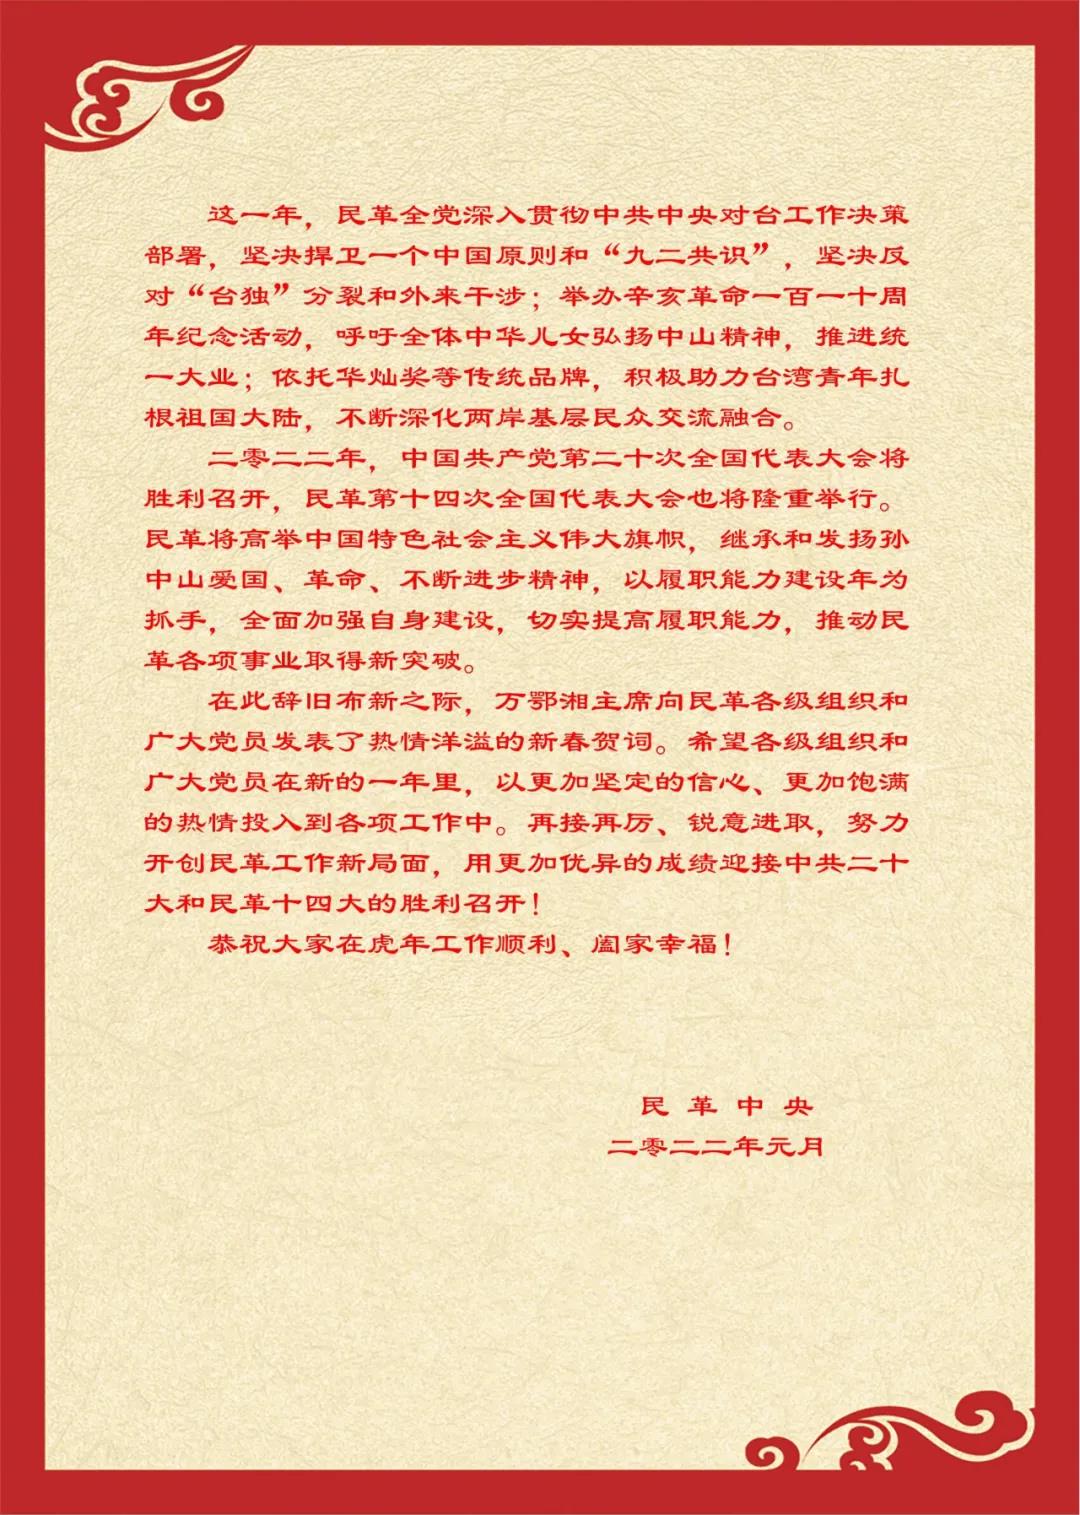 这一年，民革全党深入贯彻中共中央对台工作决策
部署，坚决捍卫一个中国原则和“九二共识”，坚决反
对“台独”分裂和外来干涉；举办辛亥革命一百一十周
年纪念活动，呼吁全体中华儿女弘扬中山精神，推进统
一大业；依托华灿奖等传统品牌，积极助力台湾青年扎
根祖国大陆，不断深化两岸基层民众交流融合。
二零二二年，中国共产党第二十次全国代表大会将
胜利召开，民革第十四次全国代表大会也将隆重举行。
民革将高举中国特色社会主义伟大旗帜，继承和发扬孙
中山爱国、革命、不断进步精神，以履职能力建设年为
抓手，全面加强自身建设，切实提高履职能力，推动民
革各项事业取得新突破。
在此辞旧布新之际，万鄂湘主席向民革各级组织和
广大党员发表了热情洋溢的新春贺词。希望各级组织和
广大党员在新的一年里，以更加坚定的信心、更加饱满
的热情投入到各项工作中。再接再厉、锐意进取，努力
开创民革工作新局面，用更加优异的成绩迎接中共二十
大和民革十四大的胜利召开！
恭祝大家在虎年工作顺利、阖家幸福！
民革中央
二零二二年元月